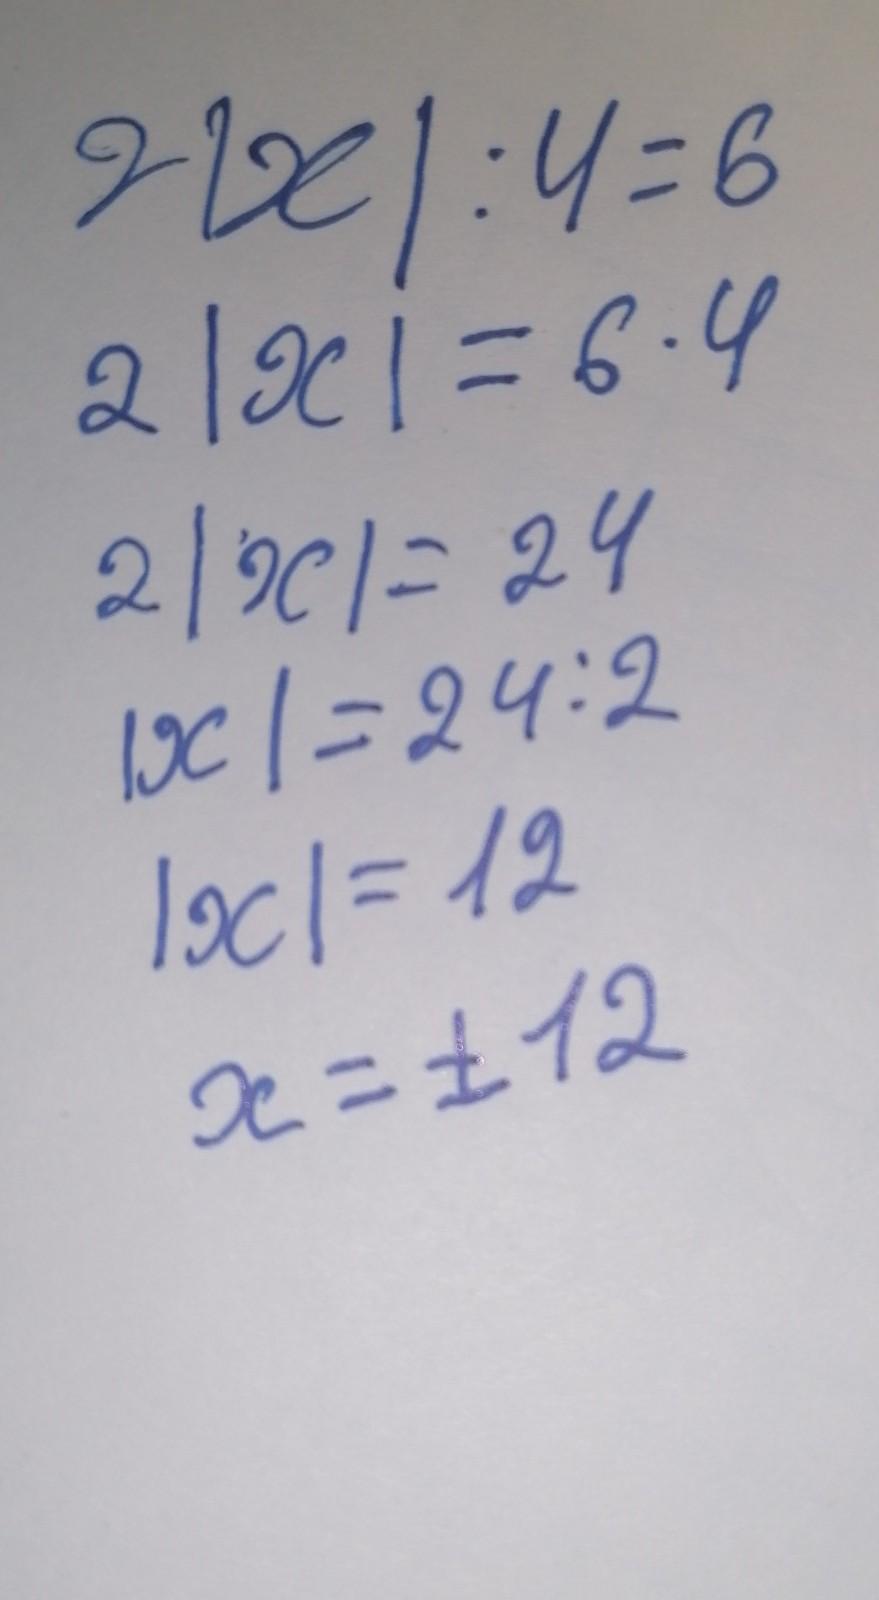 2|x| : 4 = 6
2|x| = 6 · 4
2|x| = 24
|x| = 24 : 2
|x| = 12
x = ± 12